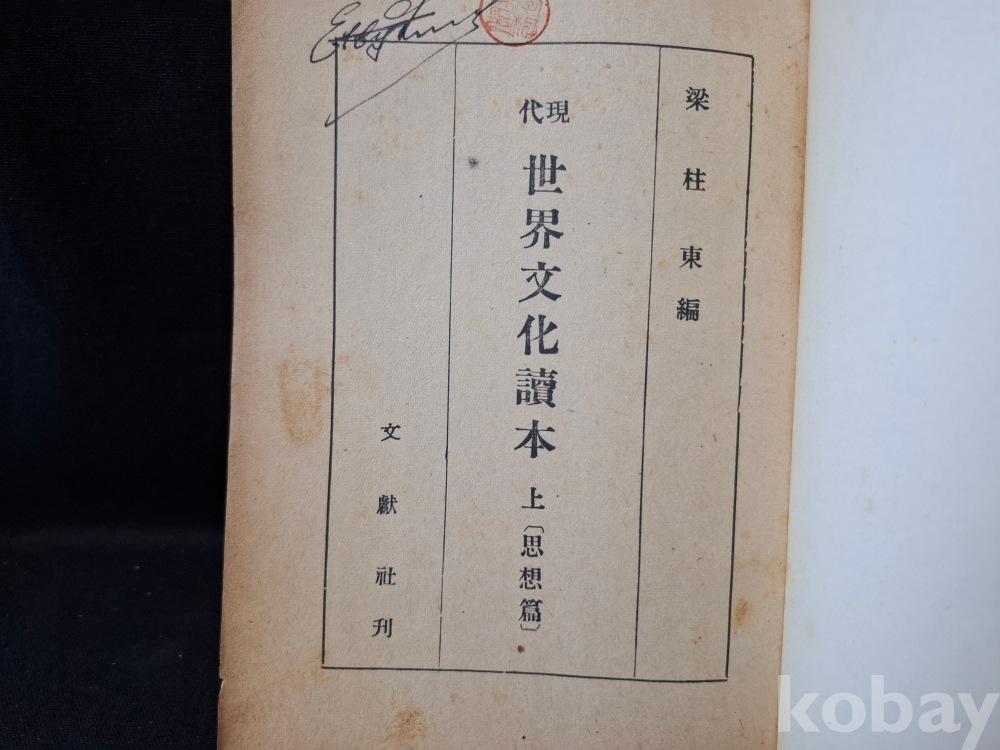 梁柱東編
現代
世界文化讀本 上〔思想篇〕
文獻社刊
kobay